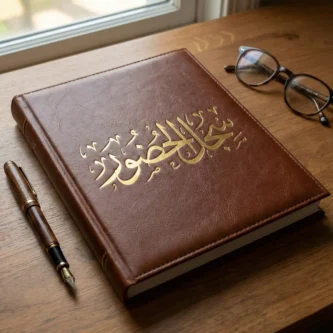 سجل الحضور